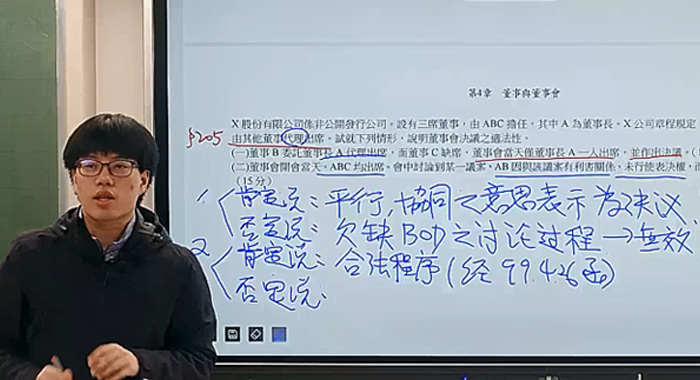 第4章　董事與董事會
X 股份有限公司係非公開發行公司，設有三席董事，由 ABC 擔任，其中 A 為董事長。X 公司章程規定
§205
由其他董事代理出席。試就下列情形，說明董事會決議之適法性。
(一)董事 B 委託董事長 A 代理出席，而董事 C 缺席，董事會當天僅董事長 A 一人出席，並作出決議。
(二)董事會開會當天，ABC 均出席。會中討論到某一議案，AB 因與該議案有利害關係，未行使表決權，而
（15 分）
1. 肯定说：平行，協同之意思表示为决议
否定说：欠缺BOD之讨论过程→無效
2 肯定说：合法程序(经99.4.26函)
否定说：